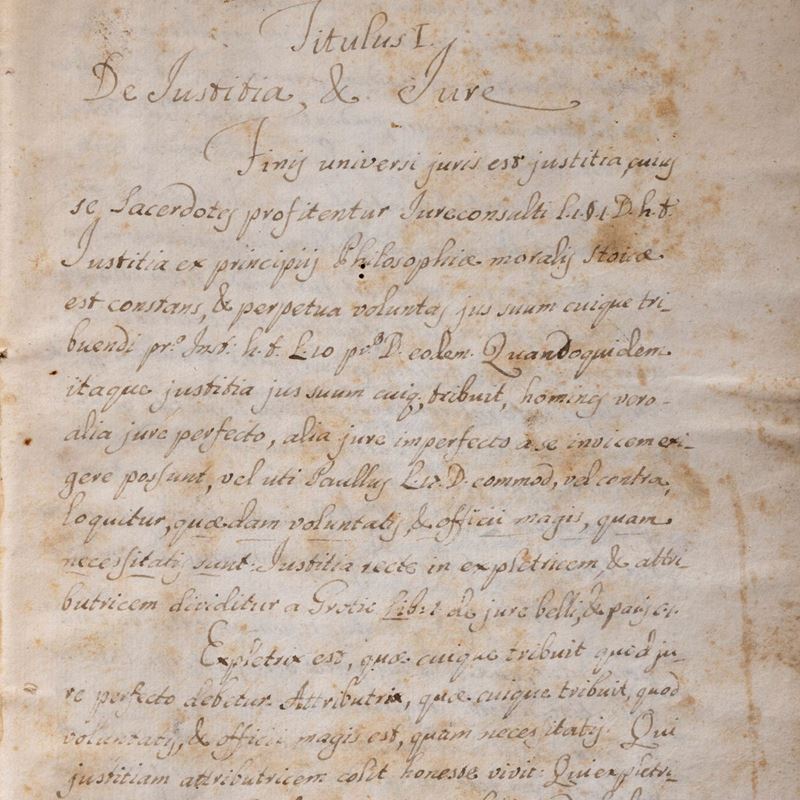 Titulus I.
De Justitia, & Jure
Finis universi juris est justitia, cuius
se Sacerdotes profitentur Jureconsulti l. 1. §. 1. D. h. t.
Justitia ex principiis Philosophiæ moralis Stoicæ
est constans, & perpetua voluntas jus suum cuique tri-
buendi pr.º Inst. h. t. L. 10 pr.º D. eodem. Quandoquidem
itaque justitia jus suum cuiq; tribuit, homines vero
alia jure perfecto, alia jure imperfecto a se invicem exi-
gere possunt, vel uti Paullus L. 17. D. commod, vel contra,
loquitur, quædam voluntatis, & officii magis, quam
necessitatis sunt: Justitia recte in expletricem, & attri-
butricem dividitur a Grotio lib. 1 de jure belli, & pacis c. 1.
Expletrix est, quæ cuique tribuit quod ju-
re perfecto debetur. Attributrix, quæ cuique tribuit, quod
voluntatis, & officii magis est, quam necessitatis. Qui
justitiam attributricem colit honeste vivit: Qui expletri-